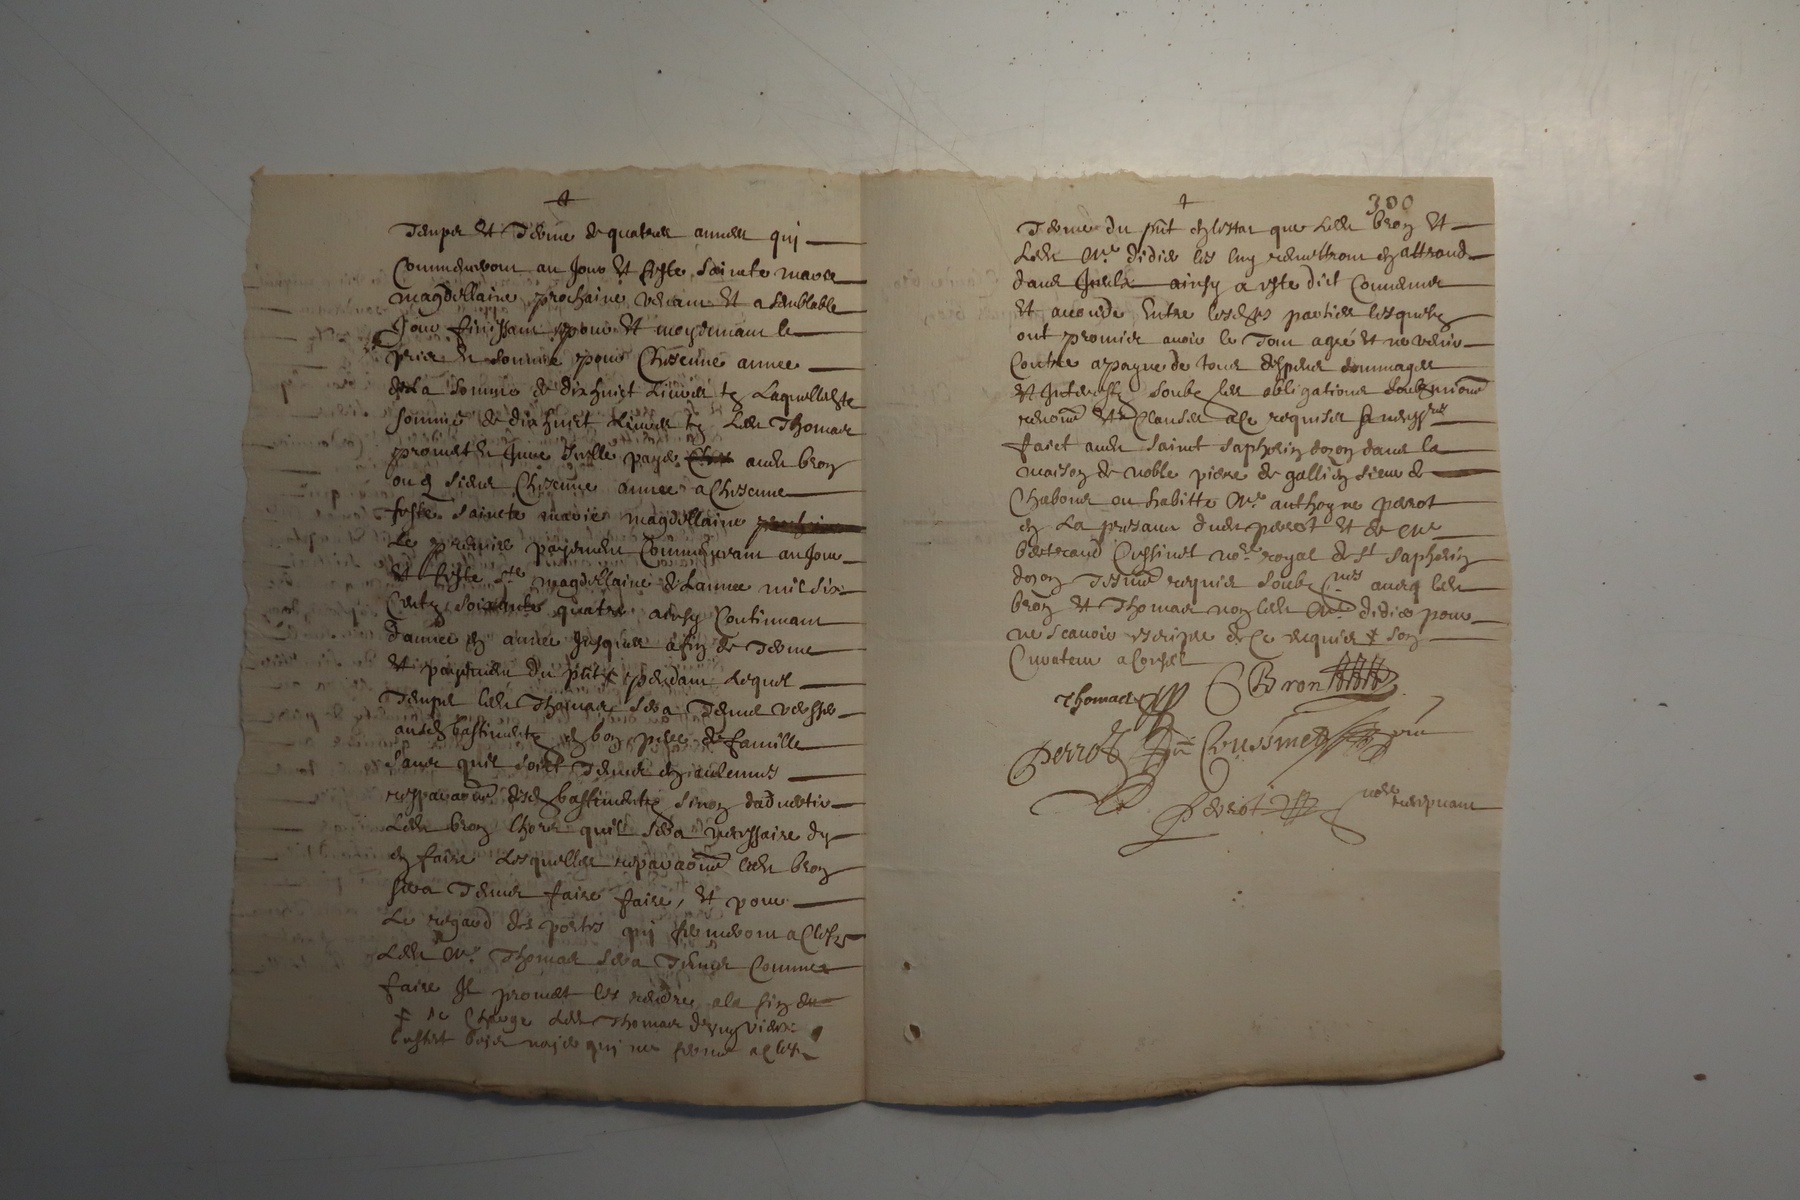 temps et terme de quatres annees quj
Commenceront au Jour et feste saincte marie
magdellaine prochaine venant et a semblable
Jour finissant pour et moyennant le
prix et somme pour Chacune annee
de la somme de dixhuict Livres tz Laquelle
somme de dixhuict Livres tz Ledt Thomas
promet payer audt bron
ou es siens Chacune annee a Chacune
feste saincte marie magdellaine
Le premier payement Commençant au Jour
et feste ste magdellaine de Lannee mil six
Centz soixante quatre ainsy Continuant
dannee en annee Jusques a fin de terme
et payement du pnt pendant Lequel
temps ledt Thomas sera tenu verser
ausdt bastimentz en bon pere de famille
sans quil soict tenu en aulcunes
repparaons desdt bastimentz sinon dadvertir
Ledt bron Lhors quil sera necessaire dy
en faire Lesquelles repparaons ledt bron
sera tenus faire faire, et pour
Le regard des portes quj fermeront a Clefz
Ledt Me Thomas sera tenus Comme
faire Il promet les rendre a la fin du
+ se Charge Ledt Thomas dung vieux
boys noier quj ne ferme a Clef
300
terme du pnt en lestat que Ledt bron et
Ledt Me didier les luy remettront en
dans Icelle ainsy a este dict Convenu
et accorde Entre lesdtes parties lesquelz
ont promis avoir le tout agreé et ne venir
Contre a payne de tous despens dommages
et Interestz soubz les obligations
renon et Clauses a Ce requises
faict audt saint saphorin dozon dans la
maison de noble piere de gallien sieur de
Chabons ou habitte Me anthoyne perrot
en La presance dudt perrot et de Me
bertrand Cussinet nore royal de st saphorin
dozon tesmoins requis soubznes avecq ledt
bron et Thomas non ledt Me didier pour
ne scavoir escripre de Ce requis + son
Curateur a Conseil
Thomas CBron
Perrot Coussinet pnt
Perrot nore recepvant